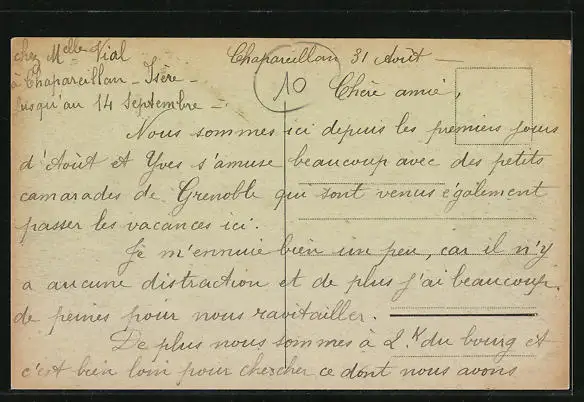 chez Melle Vial
à Chapareillan - Isère -
jusqu'au 14 Septembre -
Chapareillan 31 Août -
10
Chère amie,
Nous sommes ici depuis les premiers jours
d'Août et Yves s'amuse beaucoup avec des petits
camarades de Grenoble qui sont venus également
passer les vacances ici.
Je m'ennuie bien un peu, car il n'y
a aucune distraction et de plus j'ai beaucoup
de peines pour nous ravitailler.
De plus nous sommes à 2.K du bourg et
c'est bien loin pour chercher ce dont nous avons